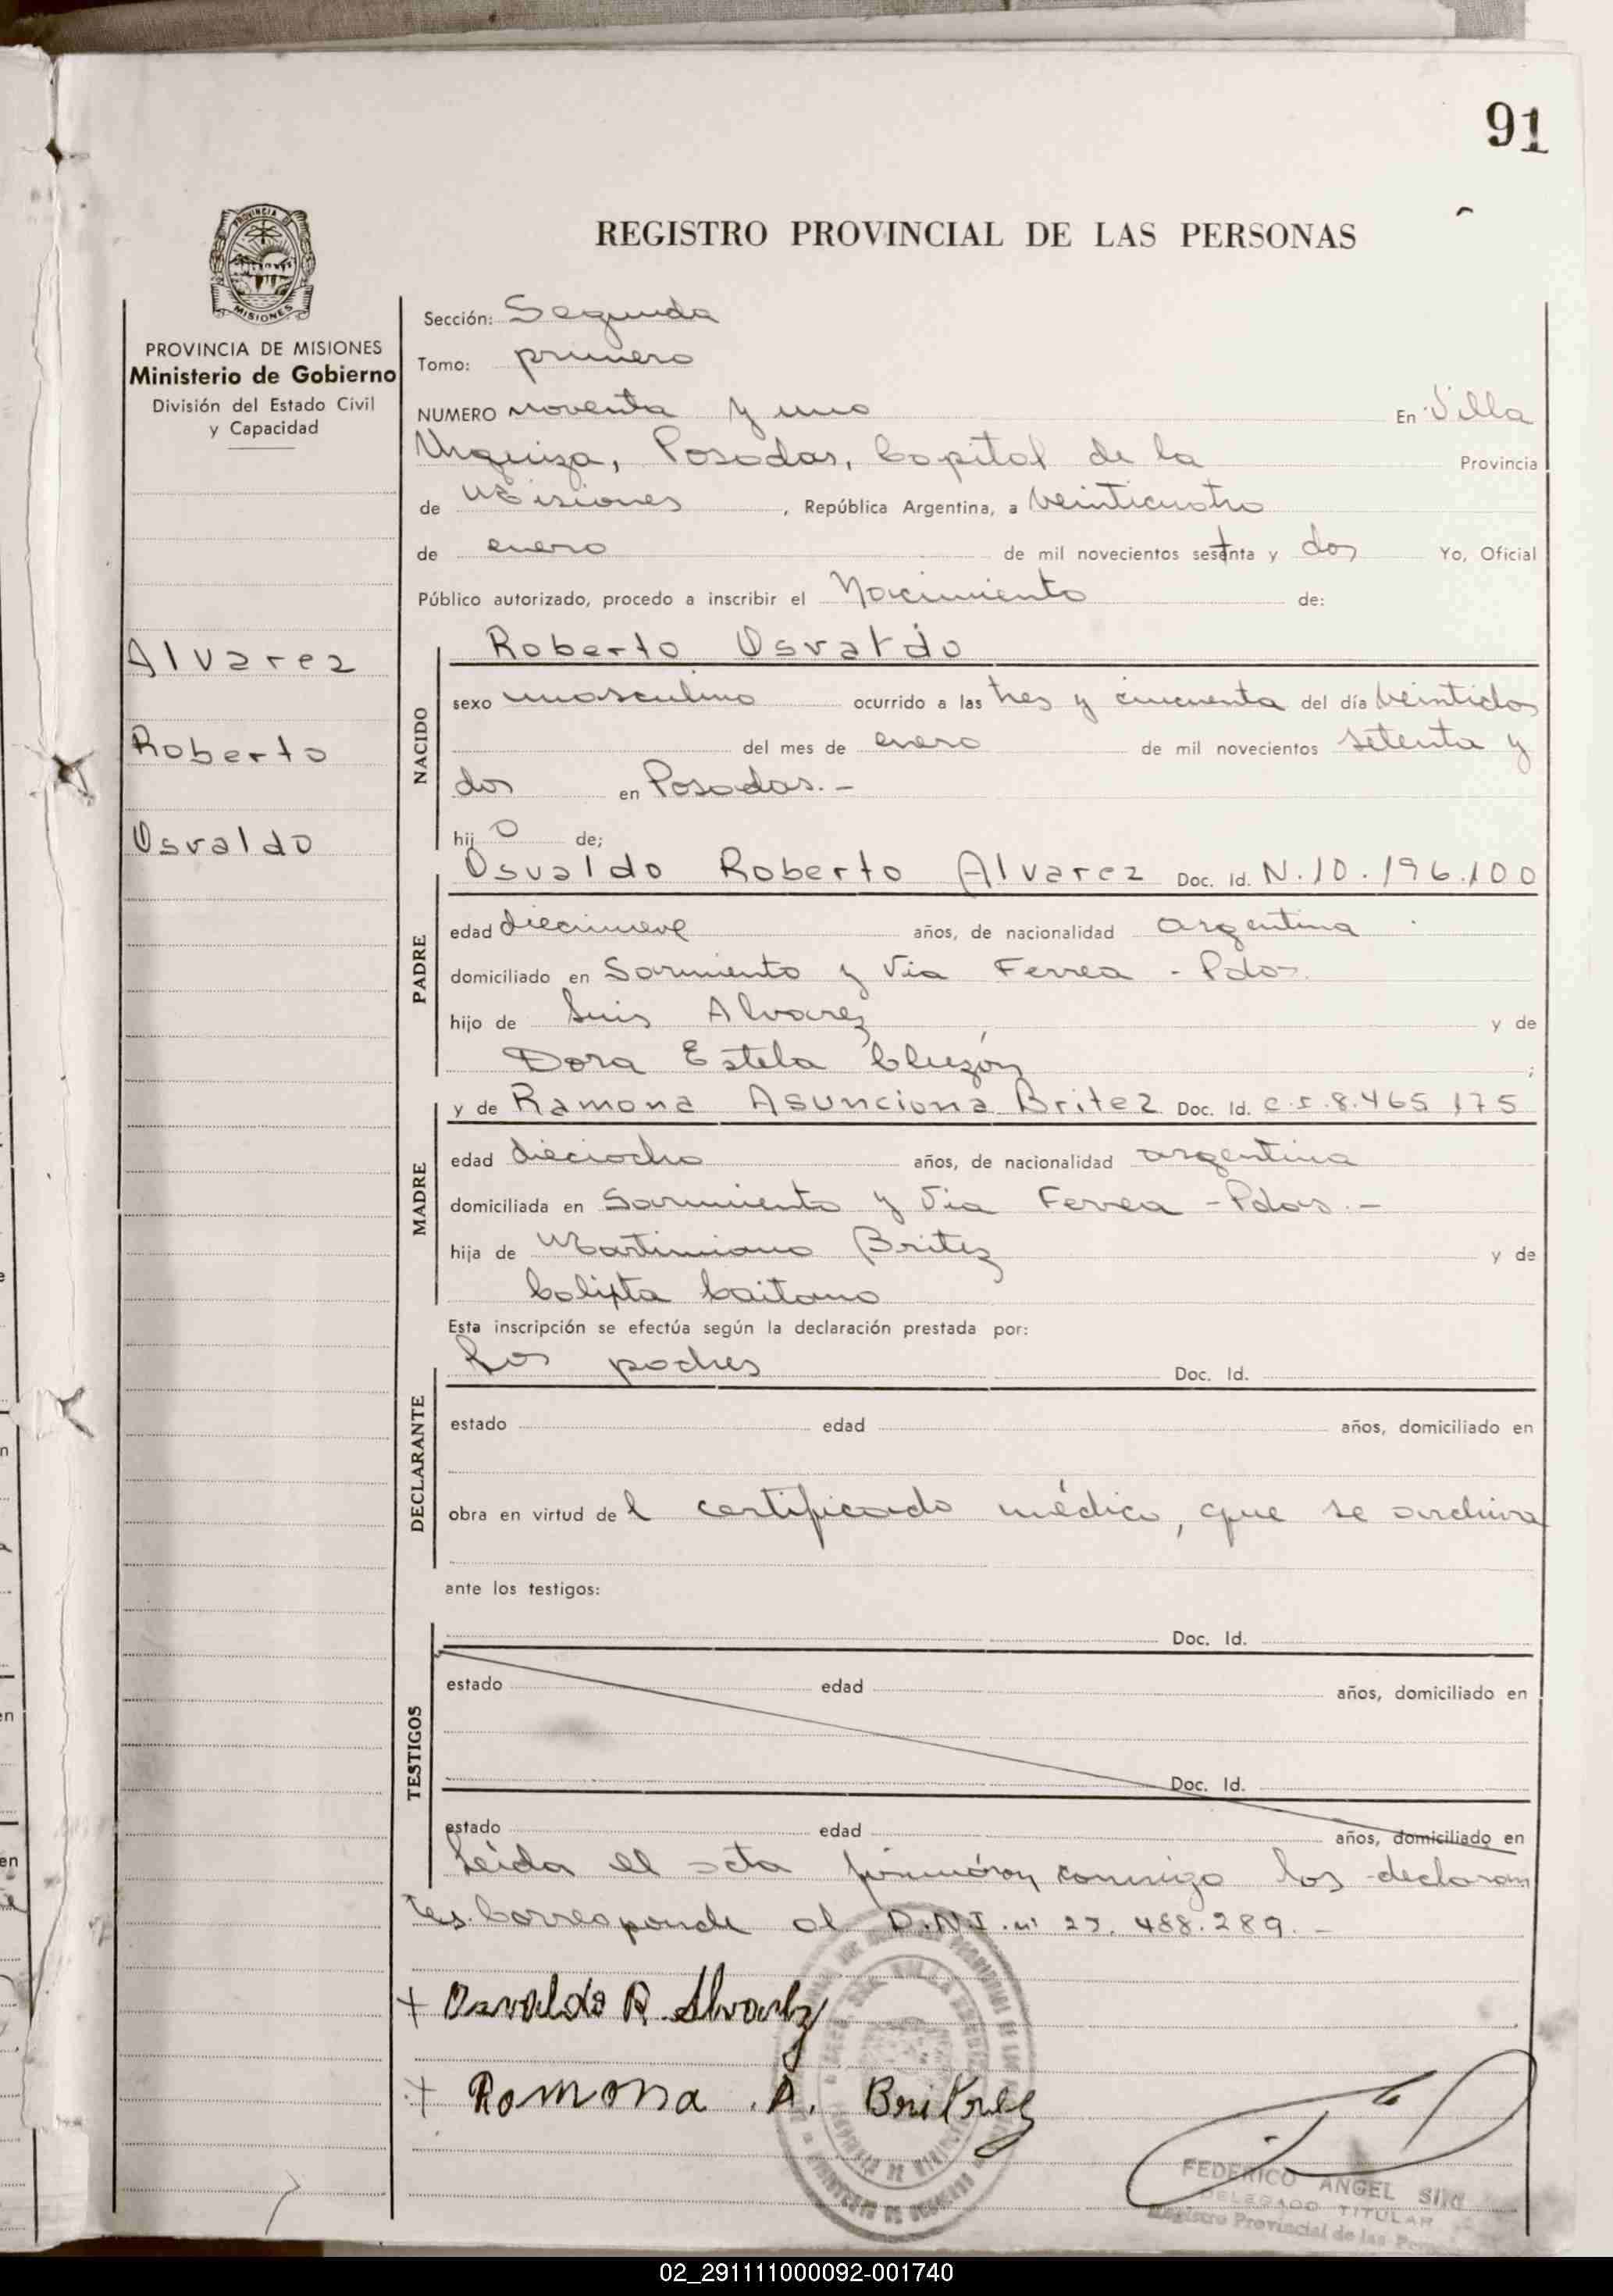 91
REGISTRO PROVINCIAL DE LAS PERSONAS
PROVINCIA DE MISIONES
MISIONES
PROVINCIA DE MISIONES
Ministerio de Gobierno
División del Estado Civil
y Capacidad
Alvarez
Roberto
Osvaldo
Sección: Segunda
Tomo: primero
NUMERO noventa y uno En Villa
Urquiza, Posadas, Capital de la Provincia
de Misiones, República Argentina, a veinticuatro
de enero de mil novecientos setenta y dos Yo, Oficial
Público autorizado, procedo a inscribir el Nacimiento de:
Roberto Osvaldo
NACIDO
sexo masculino ocurrido a las tres y cincuenta del día veintidos
del mes de enero de mil novecientos setenta y
dos en Posadas.-
hijo de;
PADRE
Osvaldo Roberto Alvarez Doc. Id. N.10.196.100
edad diecinueve años, de nacionalidad argentina
domiciliado en Sarmiento y Via Ferrea - Pdas.
hijo de Luis Alvarez y de
Dora Estela Cluzón;
MADRE
y de Ramona Asunciona Britez Doc. Id. c.I.8.465 175
edad dieciocho años, de nacionalidad argentina
domiciliada en Sarmiento y Via Ferrea - Pdas.-
hija de Martiniano Britez y de
Calixta Caitano
Esta inscripción se efectúa según la declaración prestada por:
DECLARANTE
Los padres Doc. Id.
estado edad años, domiciliado en
obra en virtud del certificado médico, que se archiva
ante los testigos:
TESTIGOS
Doc. Id.
estado edad años, domiciliado en
Doc. Id.
estado edad años, domiciliado en
Leida el acta firmáron conmigo los declaran
tes. Corresponde al D.N.I. nº 22.488.289.-
+ Osvaldo R. Alvarez
+ Ramona A. Britez
FEDERICO ANGEL
DELEGADO TITULAR
Registro Provincial de las
02_291111000092-001740